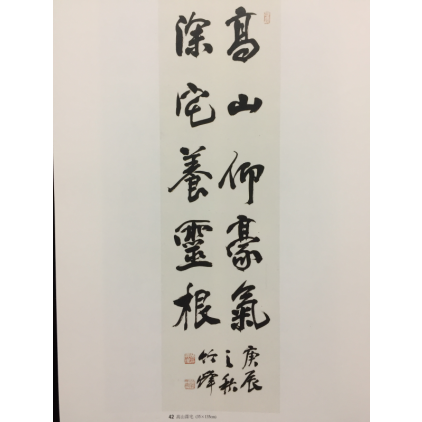 高山仰豪氣
深宅養靈根
庚辰
之秋
42